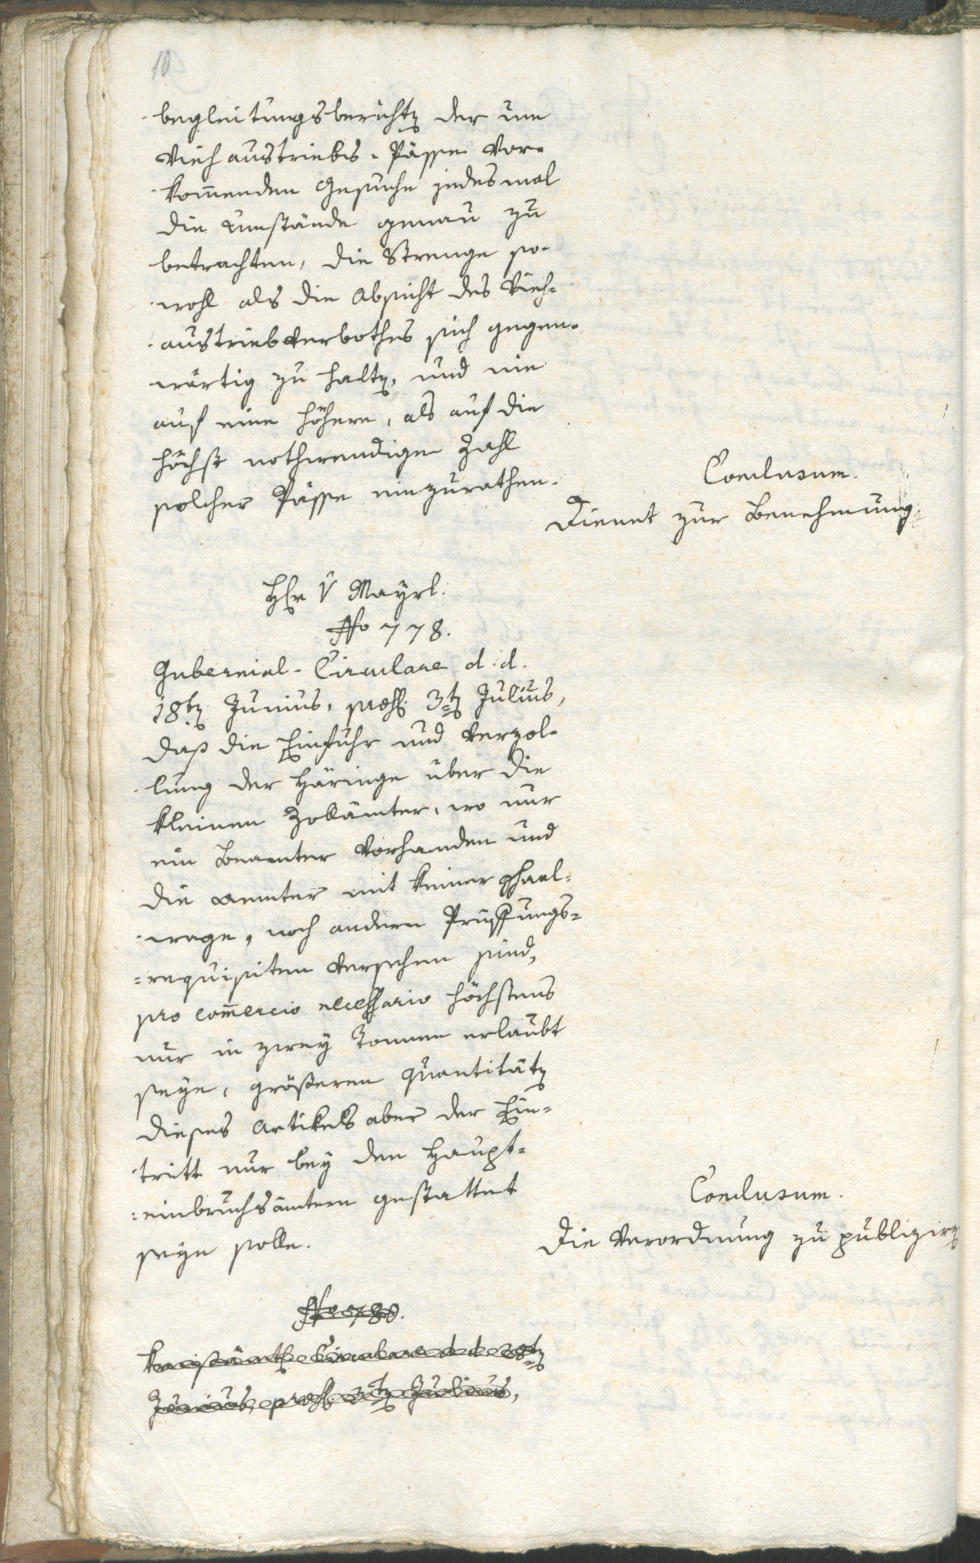 10
begleitungsberichtz der um
Viehaustriebs-Pässe vor-
kom̄enden Gesuche jedesmal
die Umstände genau zu
betrachten, die Strenge so-
wohl als die Absicht des Vieh-
austriebverbothes sich gegen-
wärtig zu haltz, und nie
auf eine höhere, als auf die
höchst nothwendige Zahl
solcher Pässe einzurathen.
Conclusum.
Dienet zur Benehmung.
H V Mayrl.
No 778.
Gubernial-Circulare d. d.
18tz Junius, præs. 3tz Julius,
daß die Einfuhr und Verzol-
lung der Häringe über die
kleinen Zollämter, wo nur
ein Beamter vorhanden und
die Aemter mit keiner Schaal-
wage, noch andern Prüfungs-
=requisiten versehen sind,
pro com̄ercio necessario höchstens
nur in zwey Tonnen erlaubt
seye, größeren Quantitätz
dieses Artikels aber der Ein-
tritt nur bey den Haupt-
=einbruchsämtern gestattet
seyn solle.
Conclusum.
Die Verordnung zu publizirz
No 780.
Kreisämtl. Circulare d d 28tz
Junius, præs. 3tz Julius,